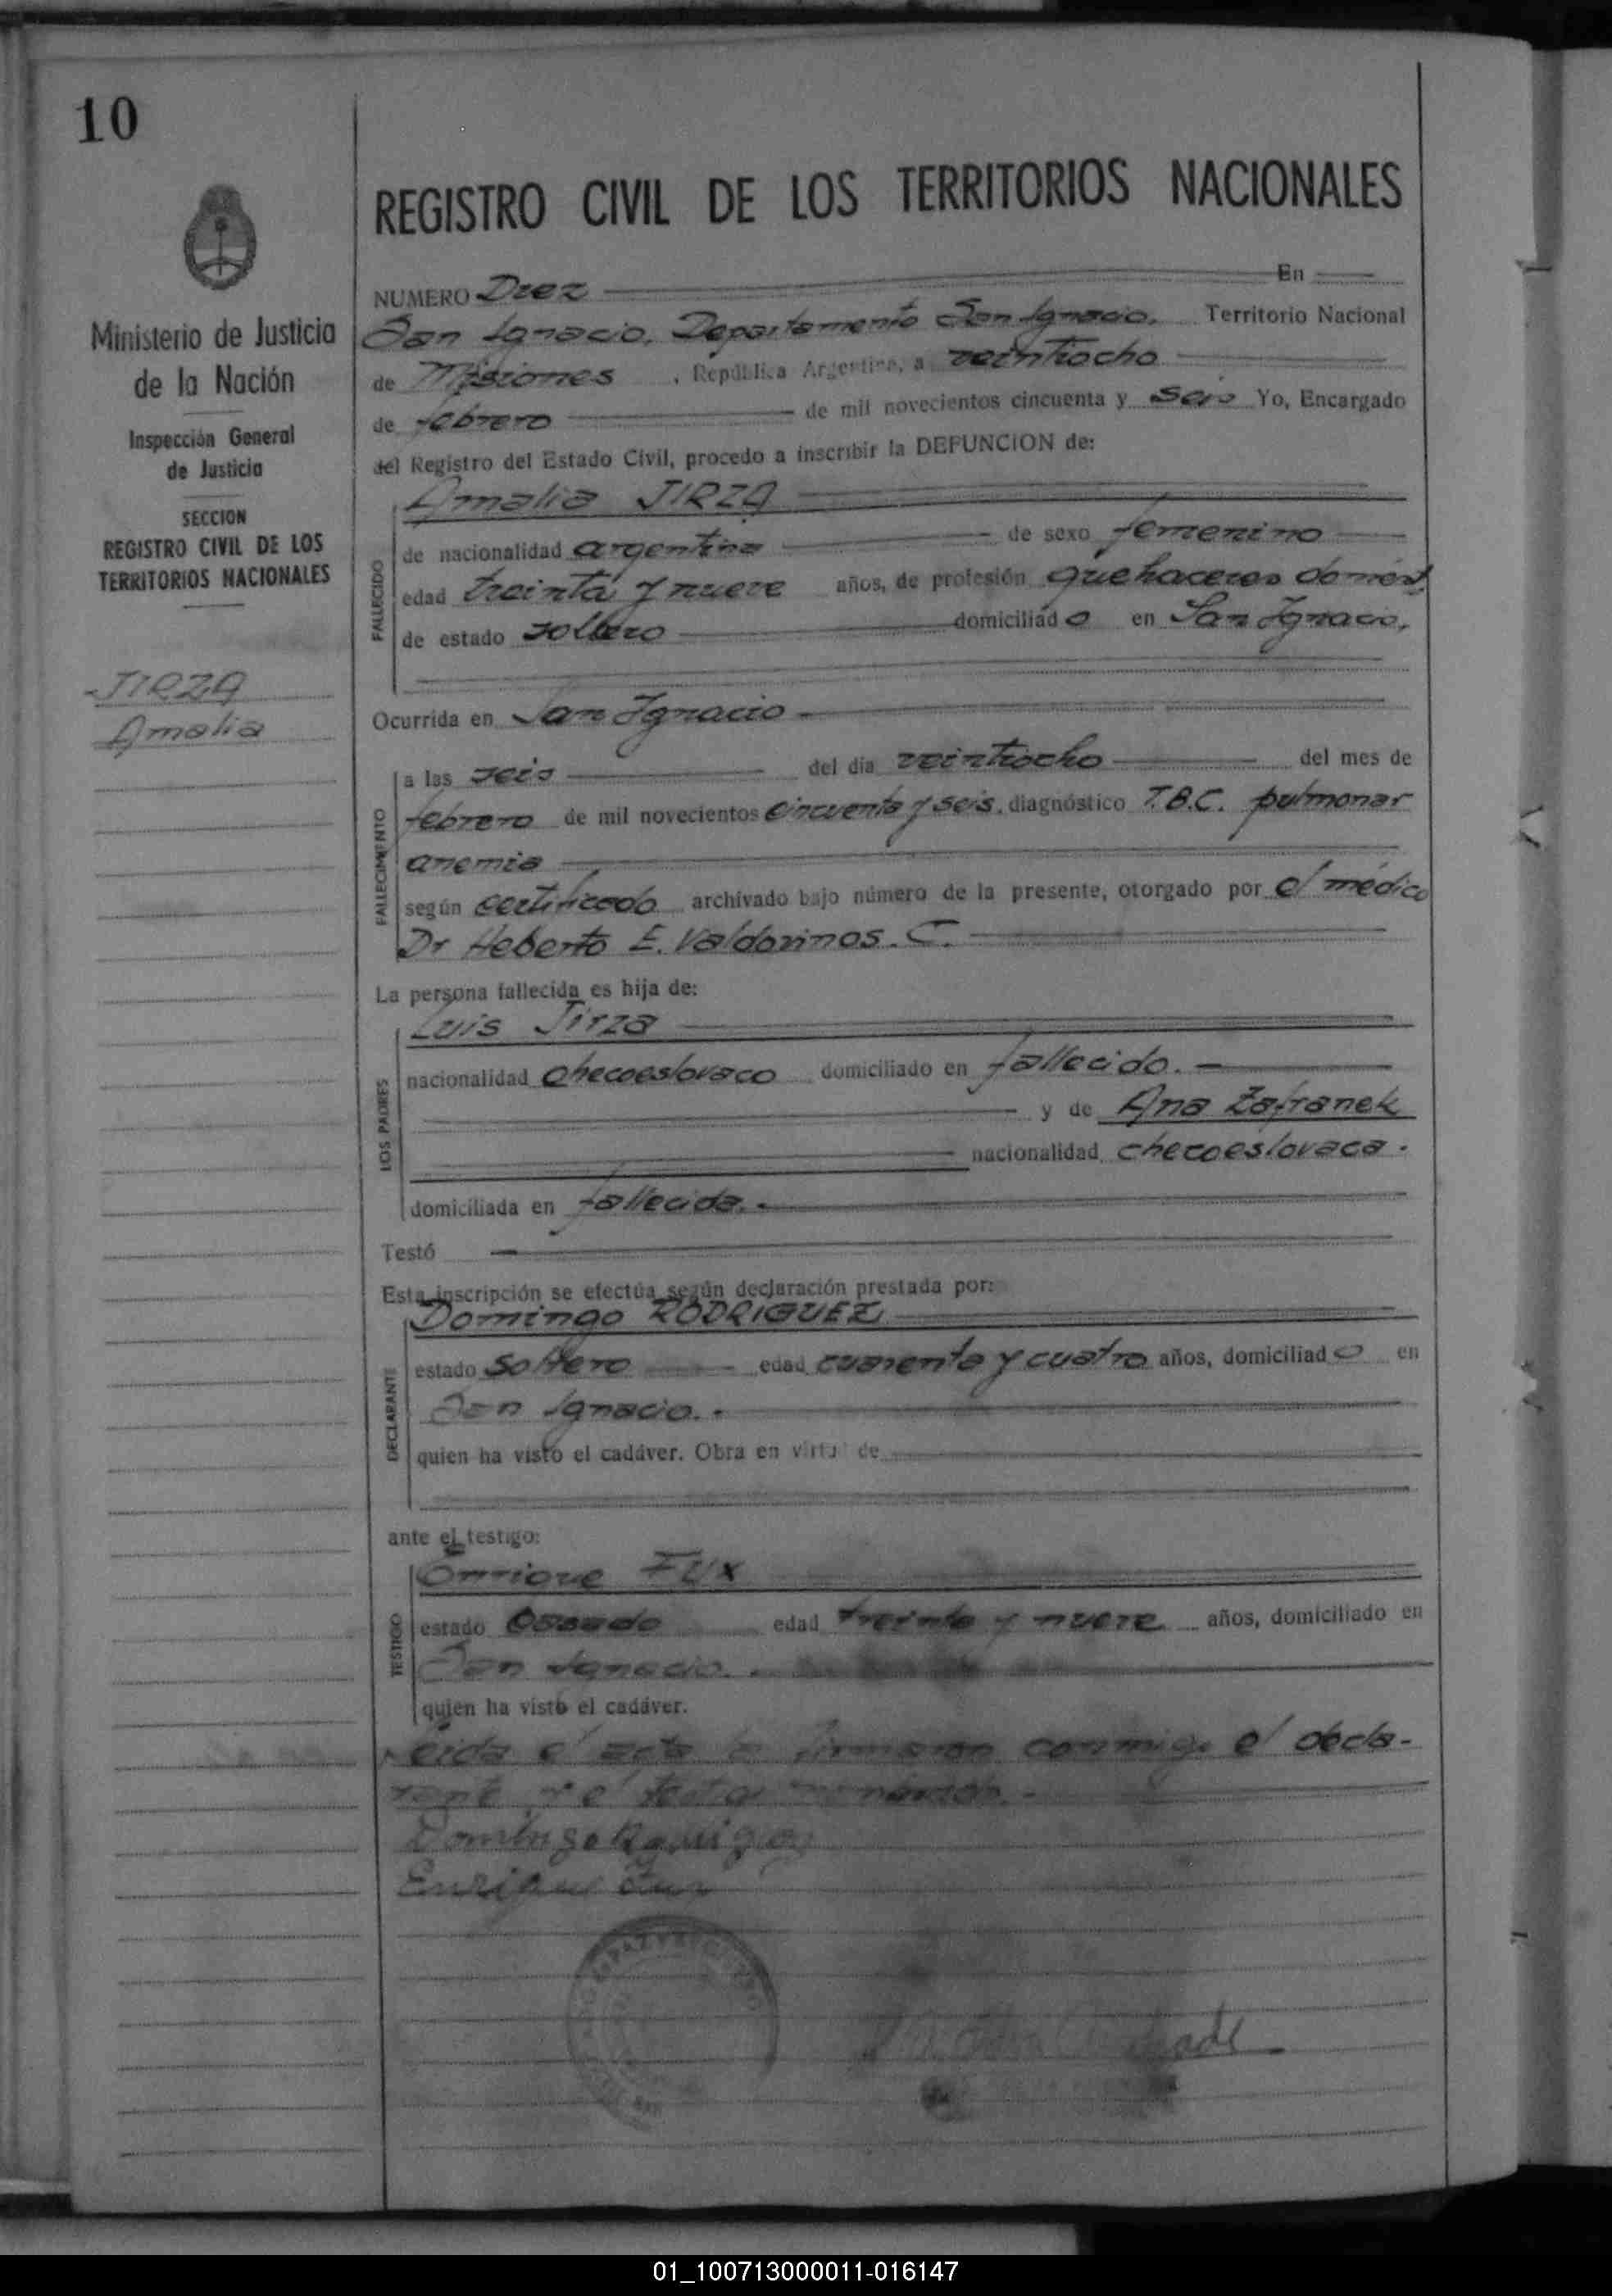 10
Ministerio de Justicia
de la Nación
Inspección General
de Justicia
SECCION
REGISTRO CIVIL DE LOS
TERRITORIOS NACIONALES
JIRZA
Amalia
REGISTRO CIVIL DE LOS TERRITORIOS NACIONALES
NUMERO Diez En
San Ignacio, Departamento San Ignacio, Territorio Nacional
de Misiones, República Argentina, a veintiocho
de febrero de mil novecientos cincuenta y seis Yo, Encargado
del Registro del Estado Civil, procedo a inscribir la DEFUNCION de:
FALLECIDO
Amalia JIRZA
de nacionalidad argentina de sexo femenino
edad treinta y nueve años, de profesión quehaceres domést.
de estado soltero domiciliado en San Ignacio,
Ocurrida en San Ignacio
FALLECIMIENTO
a las seis del día veintiocho del mes de
febrero de mil novecientos cincuenta y seis. diagnóstico T.B.C. pulmonar
anemia
según certificado archivado bajo número de la presente, otorgado por el médico
Dr Heberto E. Valdovinos. C.
La persona fallecida es hija de:
LOS PADRES
Luis Jirza
nacionalidad checoeslovaco domiciliado en fallecido.
y de Ana Zafranek
nacionalidad checoeslovaca.
domiciliada en fallecida.
Testó
Esta inscripción se efectúa según declaración prestada por:
DECLARANTE
Domingo RODRIGUEZ
estado soltero edad cuarenta y cuatro años, domiciliado en
San Ignacio.
quien ha visto el cadáver. Obra en virtud de
ante el testigo:
TESTIGO
Enrique FUX
estado casado edad treinta y nueve años, domiciliado en
San Ignacio.
quien ha visto el cadáver.
Leida el acta la firmaron conmigo el decla-
rante y el testigo
Domingo Rodriguez
Enrique Fux
01_100713000011-016147